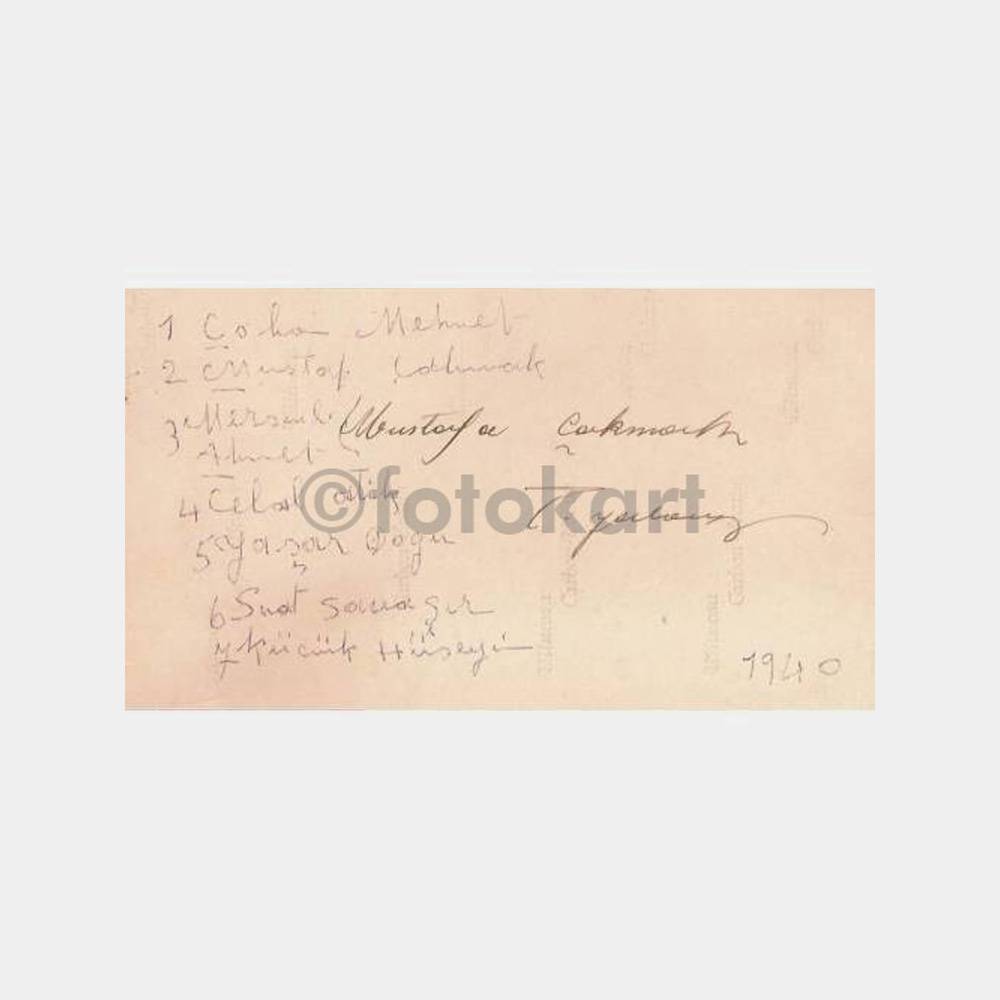 1 Çoban Mehmet
2 Mustaf Çakmak
3 Mersinli
Ahmet
Mustafa Çakmak
4 Celal Atik
5 Yaşar Doğu
6 Suat savaşır
7 Küçük Hüseyin
1940
©fotokart